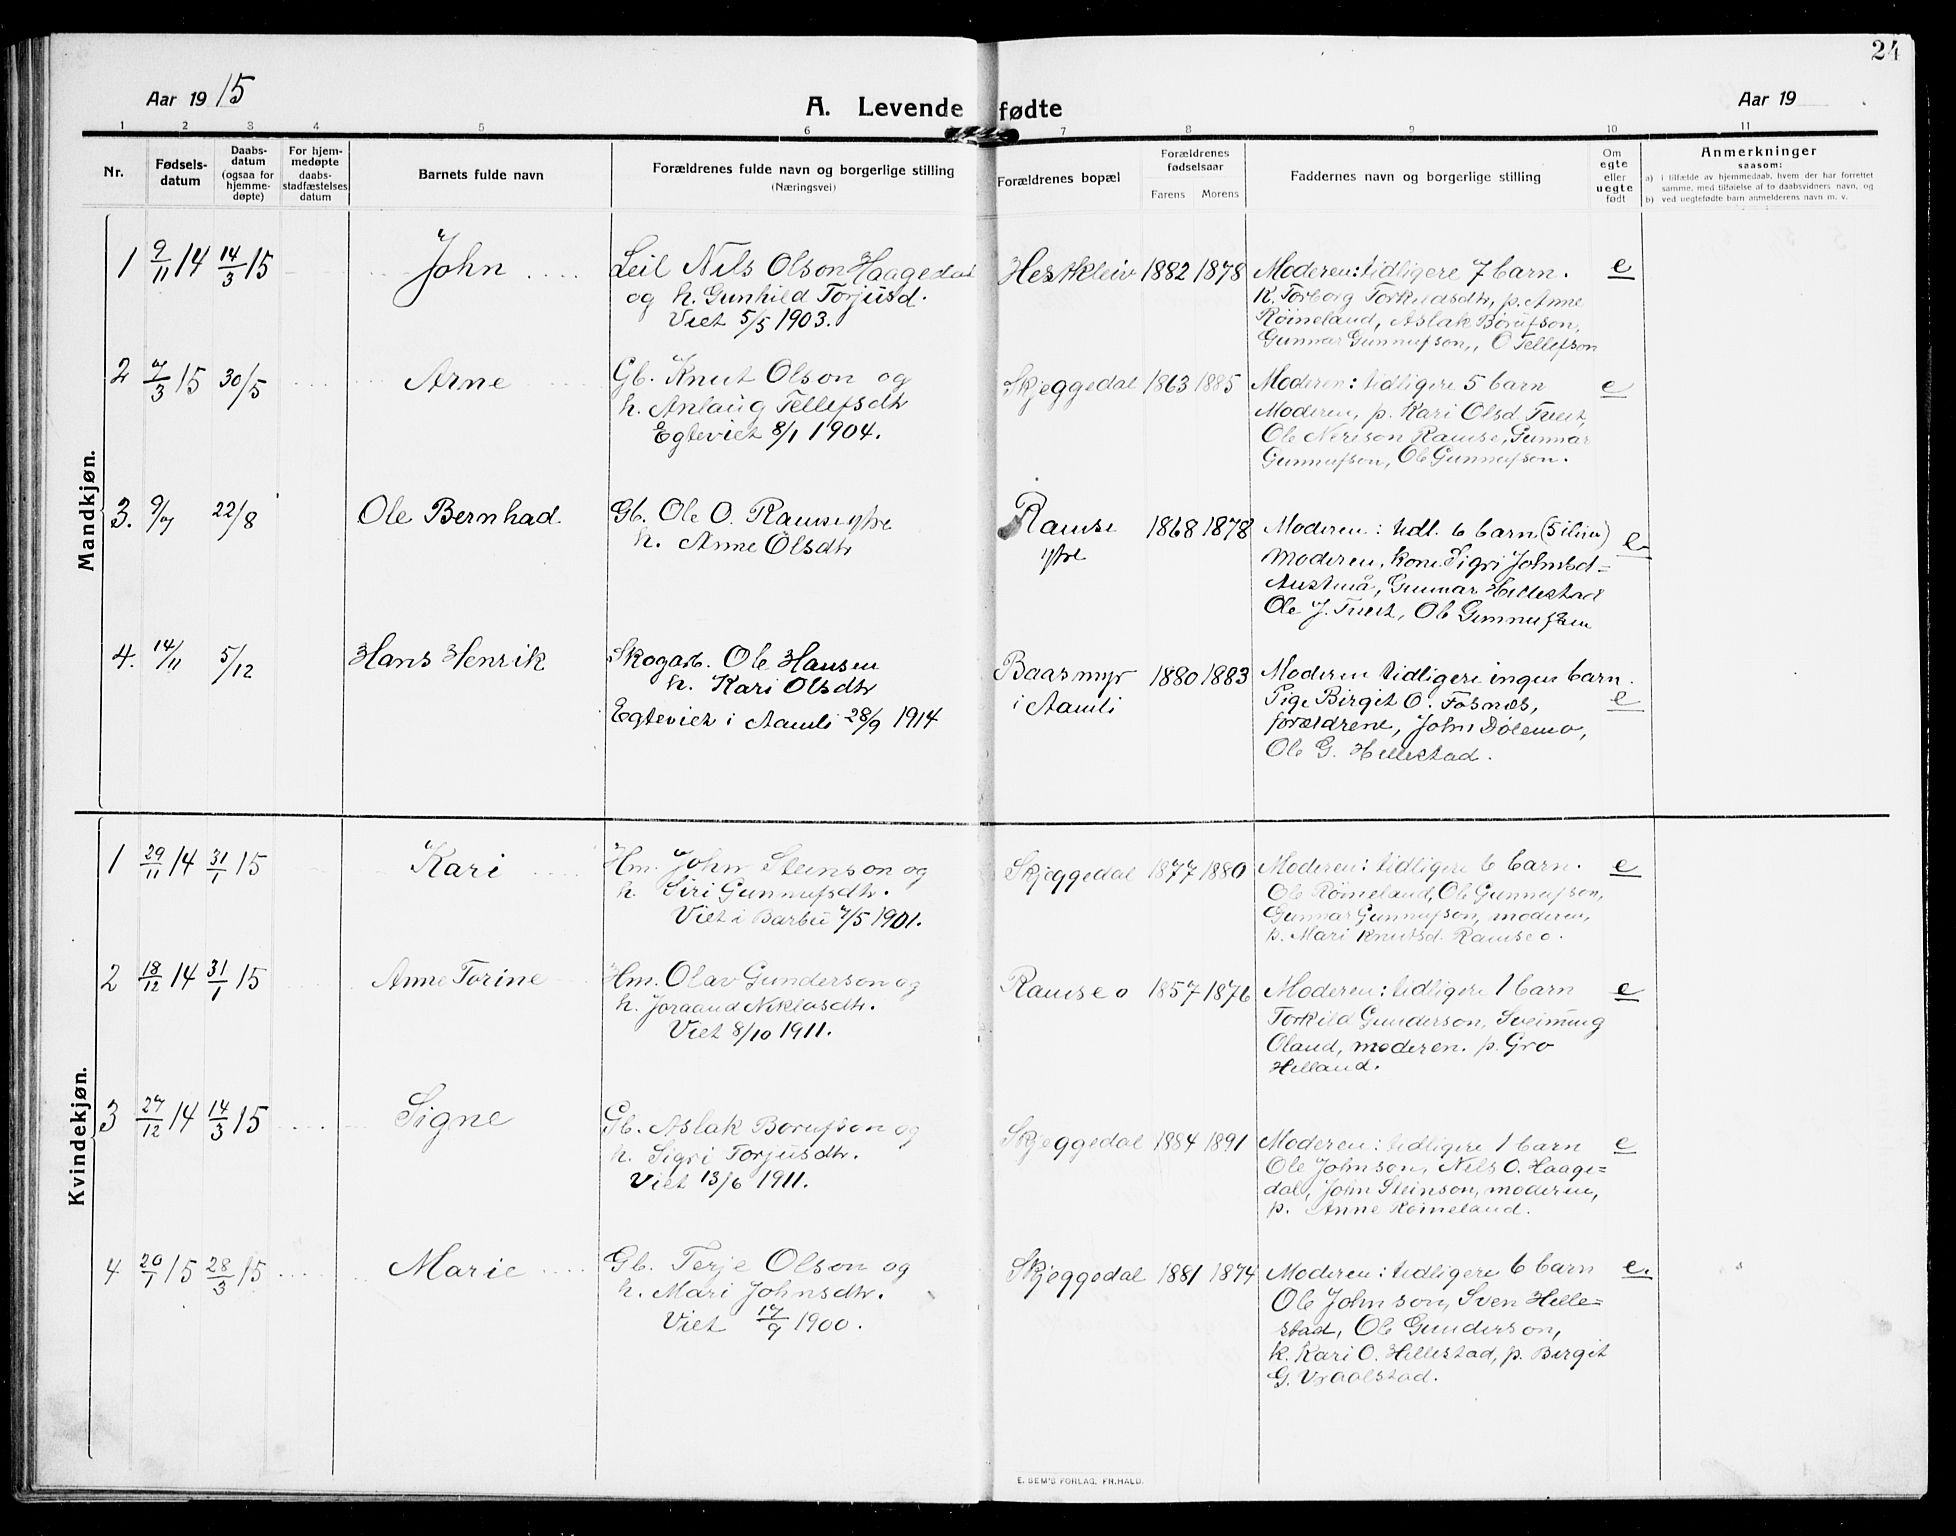 24
Aar 1915
A. Levende fødte
Aar 19
1 2 3 4 5 6 7 8 9 10 11
Nr.
Fødsels-
datum
Daabs-
datum
(ogsaa for
hjemme-
døpte)
For hjem-
medøpte
daabs-
stadfæstelses
datum
Barnets fulde navn
Forældrenes fulde navn og borgerlige stilling
(Næringsvei)
Forældrenes bopæl
Forældrenes
fødselsaar
Farens Morens
Faddernes navn og borgerlige stilling
Om
egte
eller
uegte
født
Anmerkninger
saasom:
a) i tilfælde av hjemmedaab, hvem der har forrettet
samme, med tilføielse af to daabsvidners navn, og
b) ved uegtefødte barn anmelderens navn m. v.
Mandkjøn.
1 9/11 14 14/3 15 John
Leil Nils Olson Haagedal
og h. Gunhild Torjusd.
Viet 5/5 1903.
Hestkleiv 1882 1878
Moderen: tidligere 7 barn. e
K. Torborg Torkildsdtr, p. Anne
Røineland, Aslak Børufson,
Gunnar Gunnufson, O Tellefson
2 7/3 15 30/5 Arne
Gb. Knut Olson og
h. Anlaug Tellefsdtr
Egteviet 8/1 1904.
Skjeggedal 1863 1885
Moderen: tidligere 5 barn e
Moderen, p. Kari Olsd Tveit,
Ole Nerison Ramse, Gunnar
Gunnufson, Ol Gunnufson.
3. 9/7 22/8 Ole Bernhad.
Gb. Ole O. Ramse ytre
h. Anne Olsdtr
Ramse
ytre
1868 1878
Moderen: tidl. 6 barn (5 ilive) e
Moderen, kone Sigri Johnsd=
Austenå, Gunnar Hillestad
Ole J. Tveit, Ol Gunnufsen
4. 14/11 5/12 Hans Henrik
Skogarb. Ole Hansen
h. Kari Olsdtr
Egteviet i Aamli 28/9 1914
Baasmyr
i Aamli
1880 1883
Moderen tidligere ingen barn.
Pige Birgit O. Fosnæs, e
forældrene, John Dølemo,
Ole G. Hillestad.
Kvindekjøn.
1 29/11 14 31/1 15 Kari
Hm. John Steinson og
h. Siri Gunnufsdtr.
Viet i Barbu 7/5 1901.
Skjeggedal 1877 1880
Moderen: tidligere 6 barn. e
Ole Røineland, Ol Gunnufson,
Gunnar Gunnufson, moderen,
p. Mari Knutsd. Ramse o.
2 18/12 14 31/1 15 Anne Torine
Hm. Olav Gunderson og
h. Joraand Niklasdtr.
Viet 8/10 1911.
Ramse o 1857 1876
Moderen: tidligere 1 barn e
Torkild Gunderson, Sveinung
Oland, moderen. p. Gro
Hilland.
3 27/12 14 14/3 15 Signe
Gb. Aslak Borufson og
h. Sigri Torjusdtr.
Viet 13/6 1911.
Skjeggedal 1884 1891
Moderen: tidligere 1 barn e
Ole Johnson, Nils O. Haage=
dal, John Steinson, moderen,
p. Anne Røineland.
4 20/1 15 28/3 15 Marie
Gb. Terje Olson og
h. Mari Johnsdtr.
Viet 17/9 1900.
Skjeggedal 1881 1874
Moderen: tidligere 6 barn e.
Ole Johnson, Sven Hille=
stad, Ol Gunderson,
k. Kari O. Hillestad, p. Birgit
G. Vaalstad.
E. SEM'S FORLAG. FR.HALD.